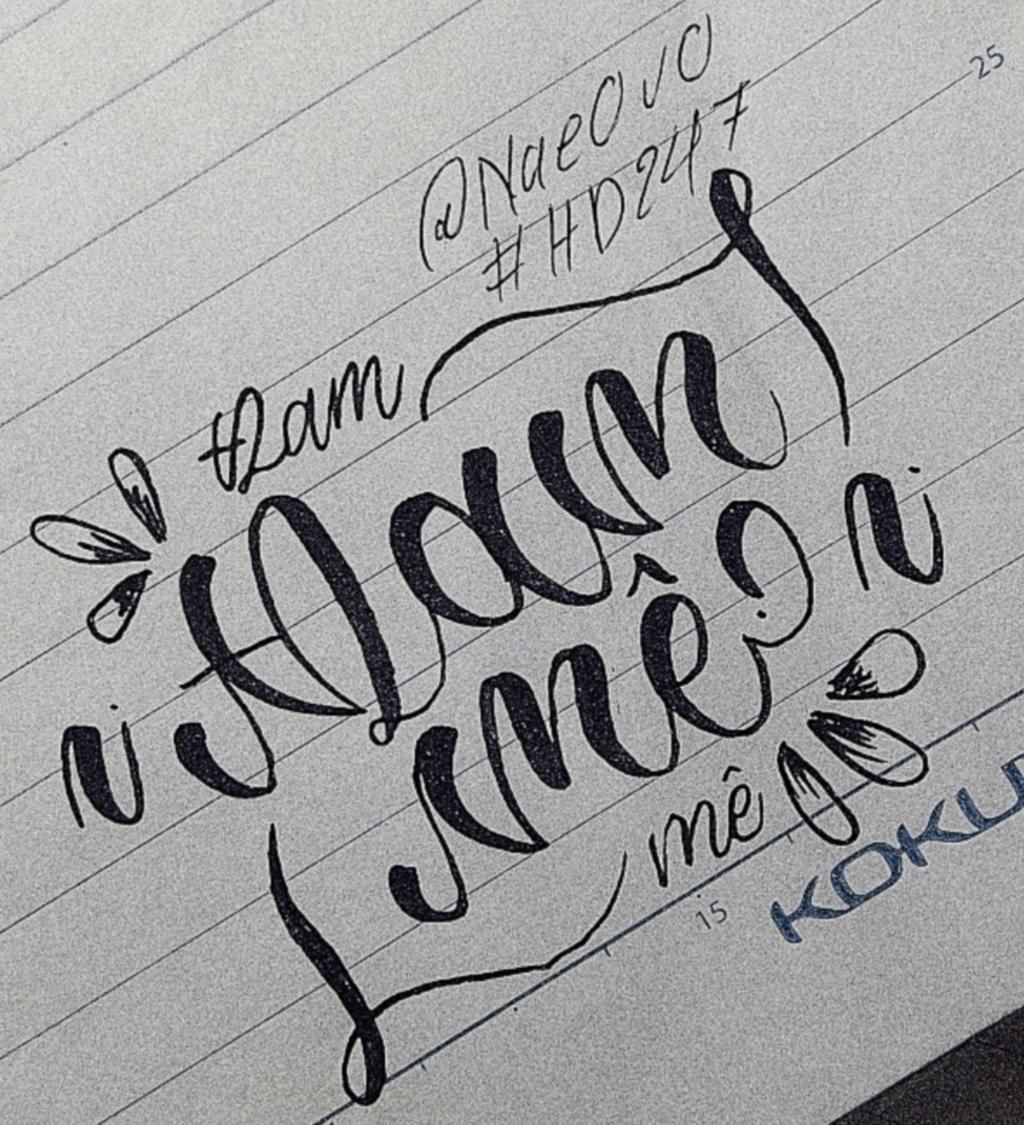 @NaeOvO
#HD247
25
Đam
Đam
mê
mê
15
KOKU